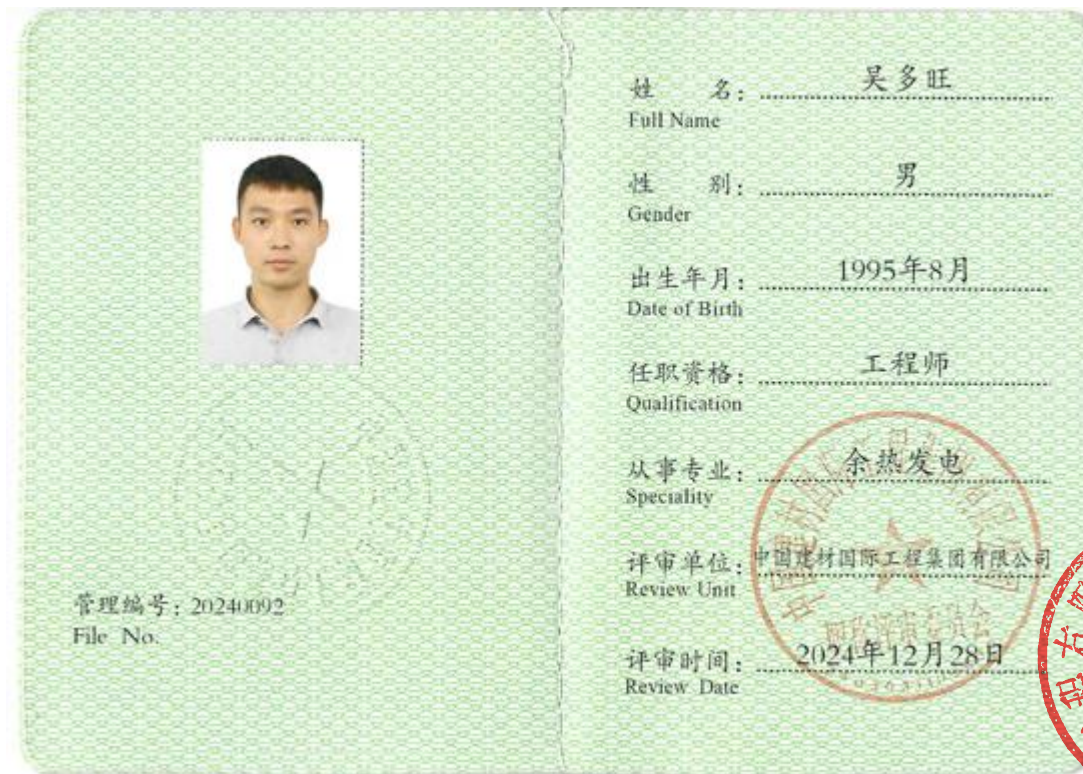 管理编号：20240092
File No.
姓 名：吴多旺
Full Name
性 别：男
Gender
出生年月：1995年8月
Date of Birth
任职资格：工程师
Qualification
从事专业：余热发电
Speciality
评审单位：中国建材国际工程集团有限公司
Review Unit
评审时间：2024年12月28日
Review Date
中国建材国际工程集团有限公司
职称评审委员会